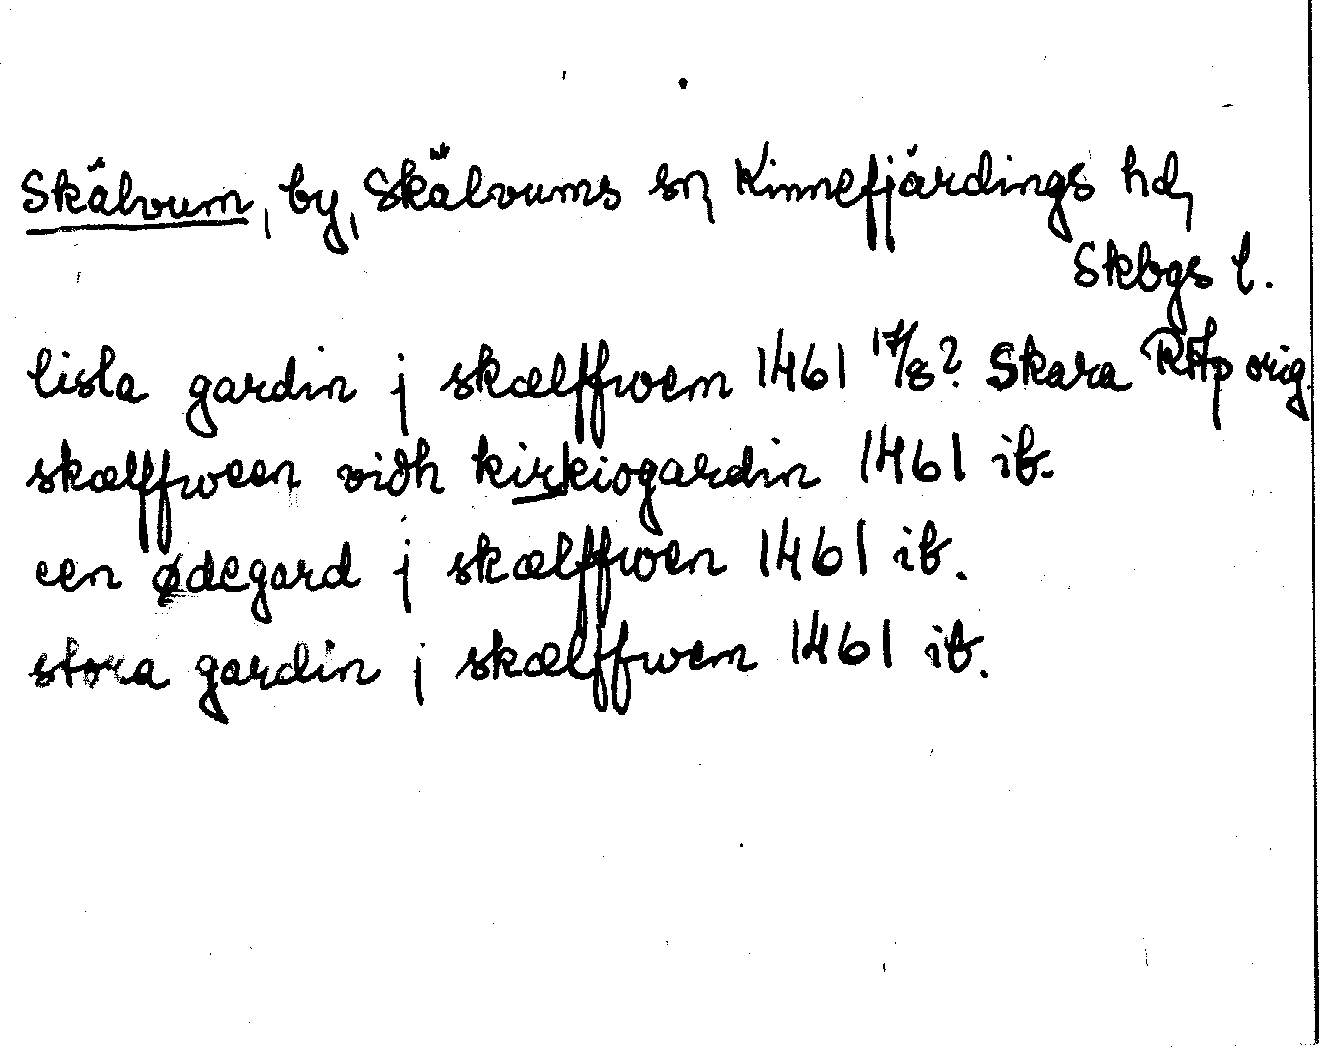 Skälvum, by, Skälvums sn, Kinnefjärdings hd,
Skbgs l.
lisla gardin j skælffwem 1461 17/8? Skara RAp orig.
skælffween vidh kirkiogardin 1461 ib.
een ødegard j skælffwen 1461 ib.
stora gardin j skælffwem 1461 ib.